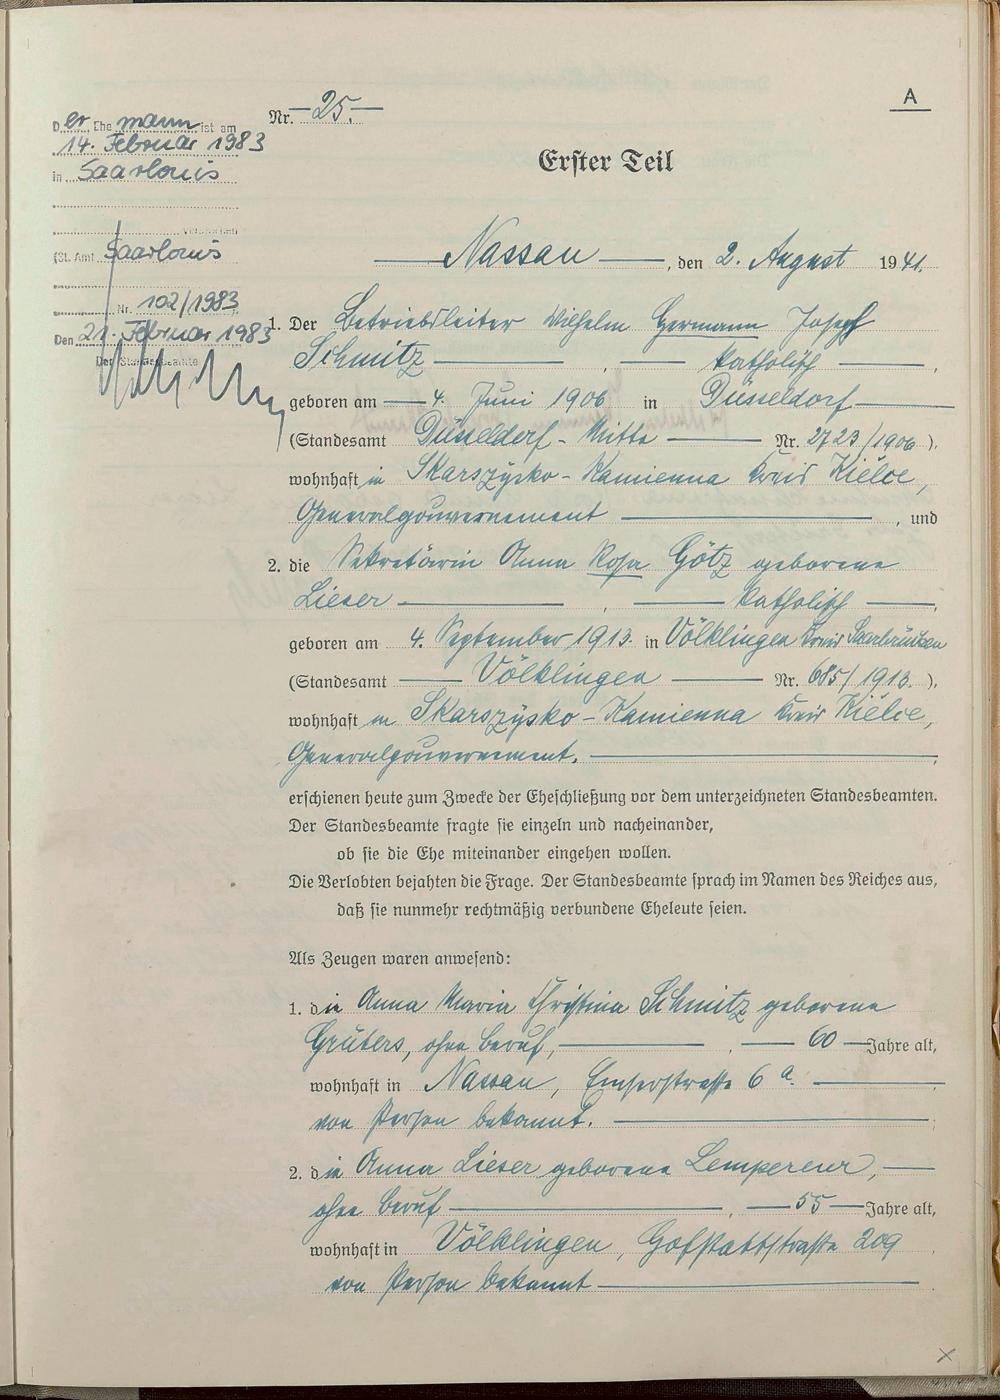 A
Nr. 25.
Der Ehemann ist am
14. Februar 1983
in Saarlouis
verstorben
(St. Amt Saarlouis
Nr. 102/1983
Den 21. Februar 1983
Der Standesbeamte
Erster Teil
Nassau, den 2. August 1941.
1. Der Betriebsleiter Wilhelm Hermann Joseph
Schmitz, katholisch,
geboren am 4. Juni 1906 in Düsseldorf
(Standesamt Düsseldorf-Mitte Nr. 2723/1906),
wohnhaft in Skarszysko-Kamienna Kreis Kielce,
Generalgouvernement, und
2. die Sekretärin Anna Rosa Götz geborene
Lieser, katholisch,
geboren am 4. September 1913. in Völklingen Kreis Saarbrücken
(Standesamt Völklingen Nr. 685/1913.),
wohnhaft in Skarszysko-Kamienna Kreis Kielce,
Generalgouvernement.
erschienen heute zum Zwecke der Eheschließung vor dem unterzeichneten Standesbeamten.
Der Standesbeamte fragte sie einzeln und nacheinander,
ob sie die Ehe miteinander eingehen wollen.
Die Verlobten bejahten die Frage. Der Standesbeamte sprach im Namen des Reiches aus,
daß sie nunmehr rechtmäßig verbundene Eheleute seien.
Als Zeugen waren anwesend:
1. die Anna Maria Christina Schmitz geborene
Grüters, ohne Beruf, 60 Jahre alt,
wohnhaft in Nassau, Emserstraße 6 a.
von Person bekannt.
2. die Anna Lieser geborene Lempereur,
ohne Beruf, 55 Jahre alt,
wohnhaft in Völklingen, Hofstattstraße 209
von Person bekannt